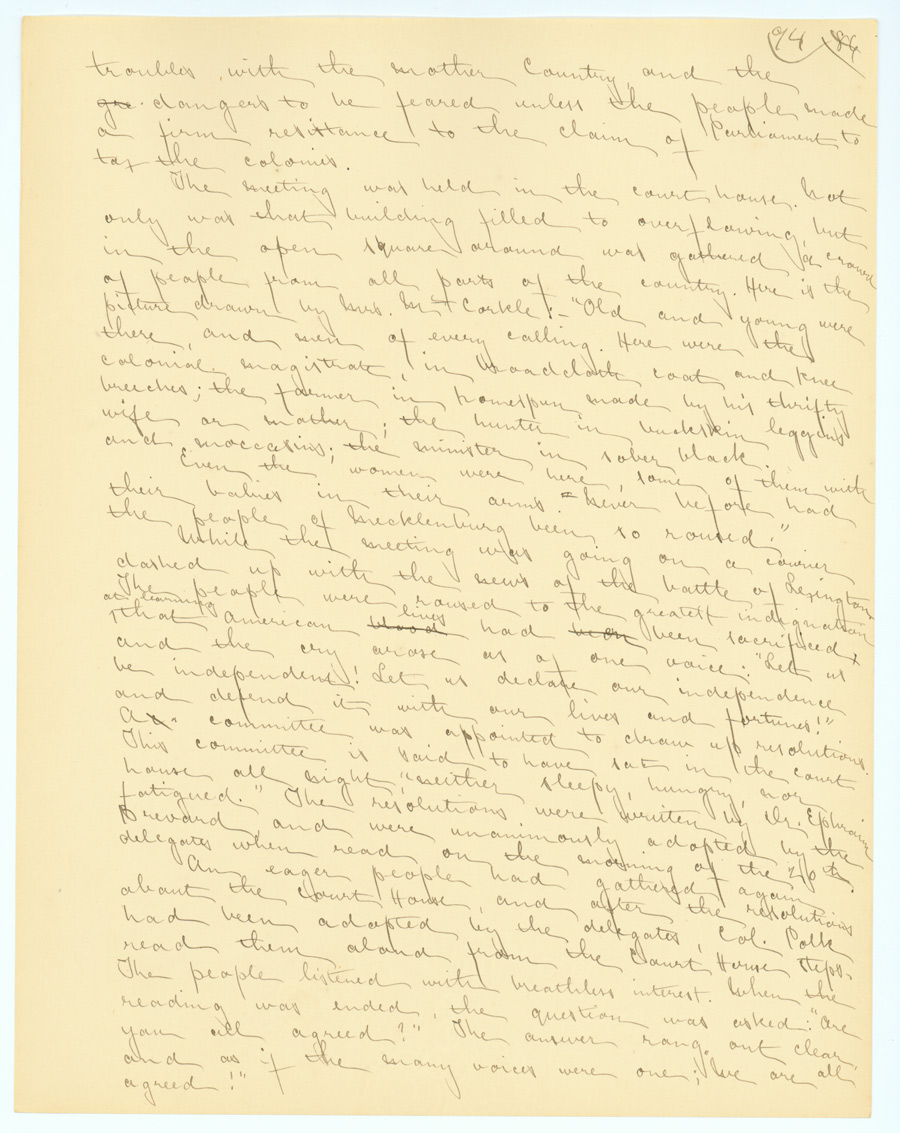 94 86
troubles, with the mother Country, and the
gre. dangers to be feared unless the people made
a firm resistance to the claim of Parliament to
tax the colonies.
The meeting was held in the court house. Not
only was that building filled to overflowing, but
in the open square around was gathered a crowd
of people from all parts of the country. Here is the
picture drawn by Mrs. McCorkle: - "Old and young were
there, and men of every calling. Here were the
colonial magistrate, in broadcloth coat and knee
breeches; the farmer in homespun made by his thrifty
wife or mother; the hunter in buckskin leggins
and moccasins; the minister in sober black.
Even the women were here, some of them with
their babies in their arms. Never before had
the people of Mecklenburg been so roused."
While the meeting was going on a courier
dashed up with the news of the battle of Lexington.
The people were roused to the greatest indignation
at learning
that American blood lives had been been sacrificed,
and the cry arose as of one voice: "Let us
be independent! Let us declare our independence
and defend it with our lives and fortunes!"
A committee was appointed to draw up resolutions.
This committee is said to have sat in the court
house all night, "neither sleepy, hungry, nor
fatigued." The resolutions were written by Dr. Ephraim
Brevard and were unanimously adopted by the
delegates when read on the morning of the 20th.
An eager people had gathered again
about the Court House, and after the resolutions
had been adopted by the delegates, Col. Polk
read them aloud from the Court House steps.
The people listened with breathless interest. When the
reading was ended, the question was asked: "Are
you all agreed?" The answer rang out clear
and as if the many voices were one; "We are all
agreed!"